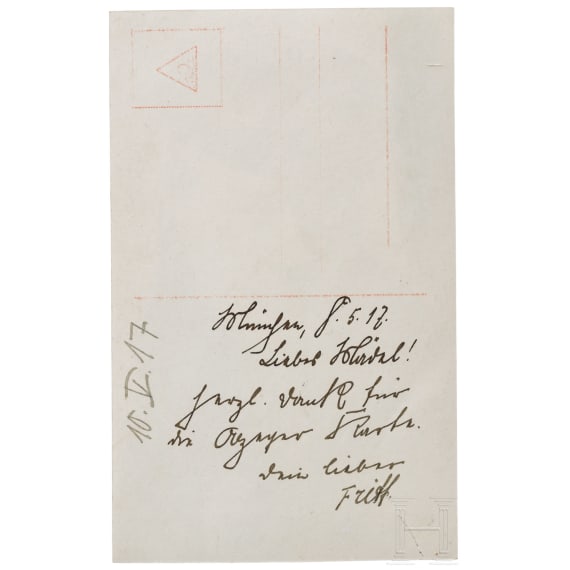 München, 8. 5. 17.
Liebes Mädel!
herzl. Dank für
die Karte.
Dein lieber
Fritz
10. V. 17